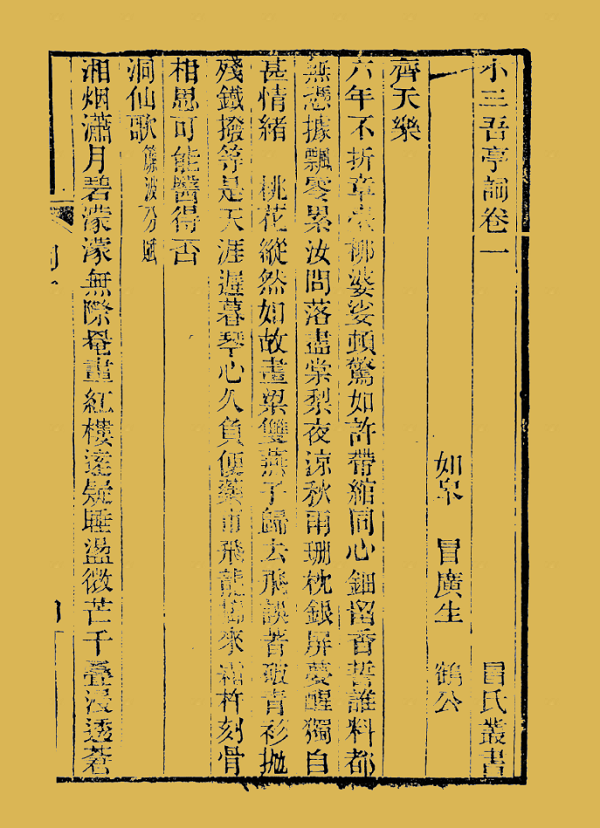 小三吾亭詞卷一 冒氏叢書
如皋 冒廣生 鶴公
齊天樂
六年不折章臺柳婆娑頓驚如許帶綰同心鈿留香誓誰料都
無憑據飄零累汝問落盡棠梨夜涼秋雨珊枕銀屏夢醒獨自
甚情緒 桃花縱然如故畫梁雙燕子歸去飛誤著破青衫拋
殘鐵撥等是天涯遲暮琴心久負便藥市飛龍來霜杵刻骨
相思可能醫得否
洞仙歌 簾波分賦
湘烟瀟月碧濛濛無際罨畫紅樓疑睡盪微芒千疊浸透蒼